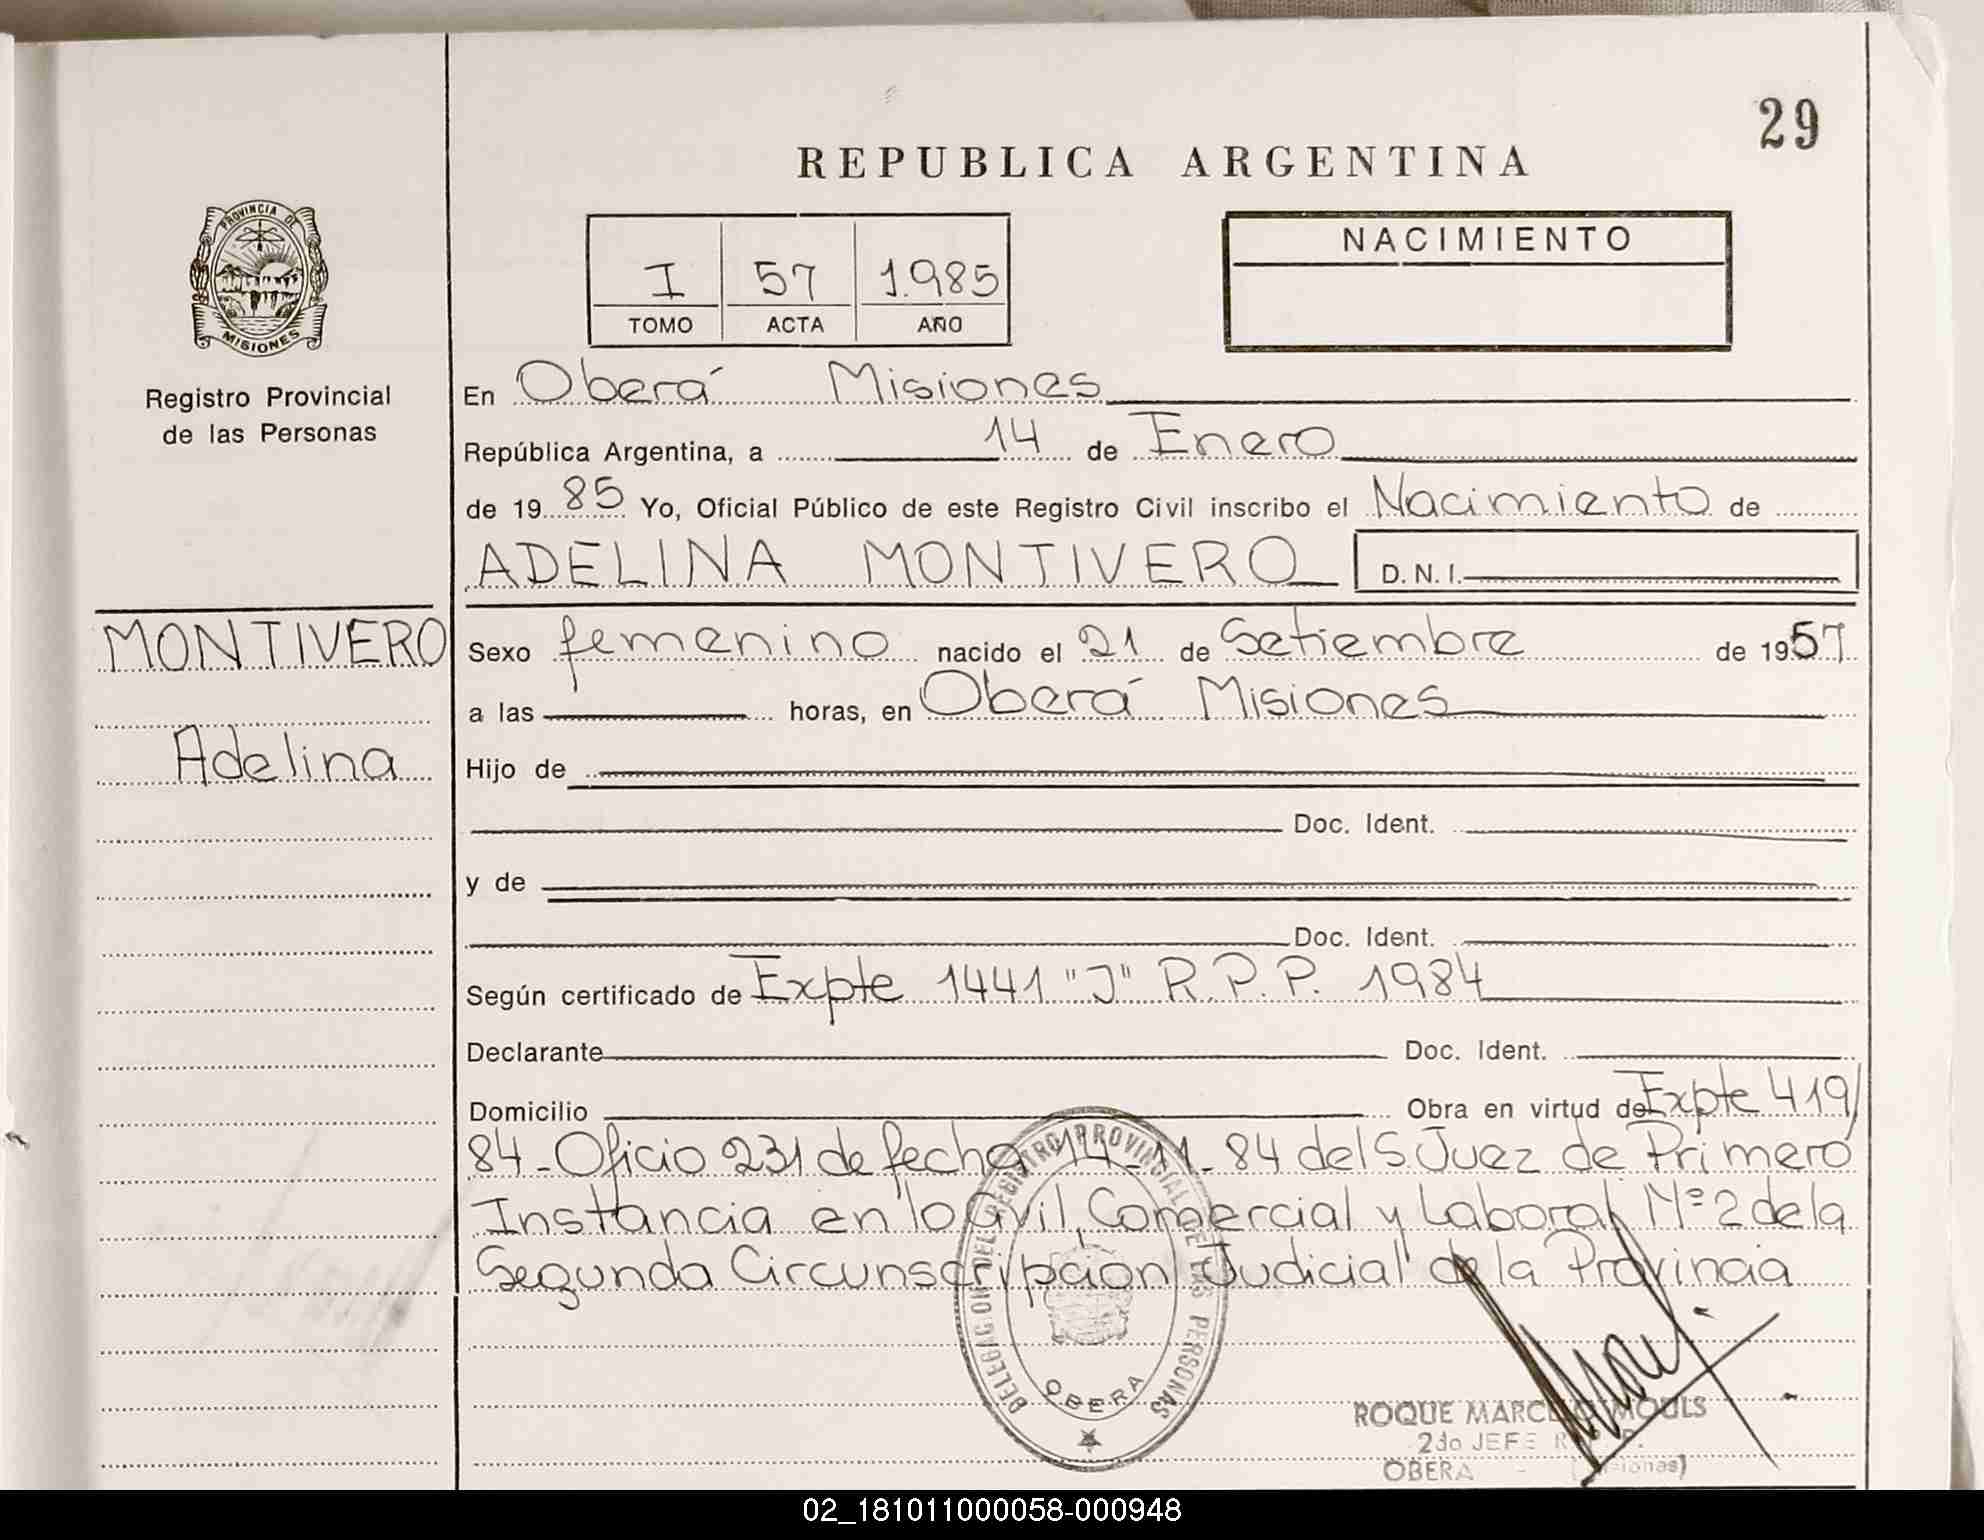 29
REPUBLICA ARGENTINA
PROVINCIA DE
MISIONES
Registro Provincial
de las Personas
I 57 1.985
TOMO ACTA AÑO
NACIMIENTO
En Oberá Misiones
República Argentina, a 14 de Enero
de 19 85 Yo, Oficial Público de este Registro Civil inscribo el Nacimiento de
ADELINA MONTIVERO D.N.I.
MONTIVERO
Adelina
Sexo femenino nacido el 21 de Setiembre de 1957
a las horas, en Oberá Misiones
Hijo de
Doc. Ident.
y de
Doc. Ident.
Según certificado de Expte 1441 "J" R.P.P. 1984
Declarante Doc. Ident.
Domicilio Obra en virtud de Expte 419/
84 - Oficio 231 de fecha 14-11-84 del S. Juez de Primero
Instancia en lo Civil, Comercial y Laboral Nº 2 de la
Segunda Circunscripción Judicial de la Provincia
DELEGACION DEL REGISTRO PROVINCIAL DE LAS PERSONAS
OBERA
ROQUE MARCELO MOULS
2do JEFE R. P. P.
OBERA - (Misiones)
02_181011000058-000948